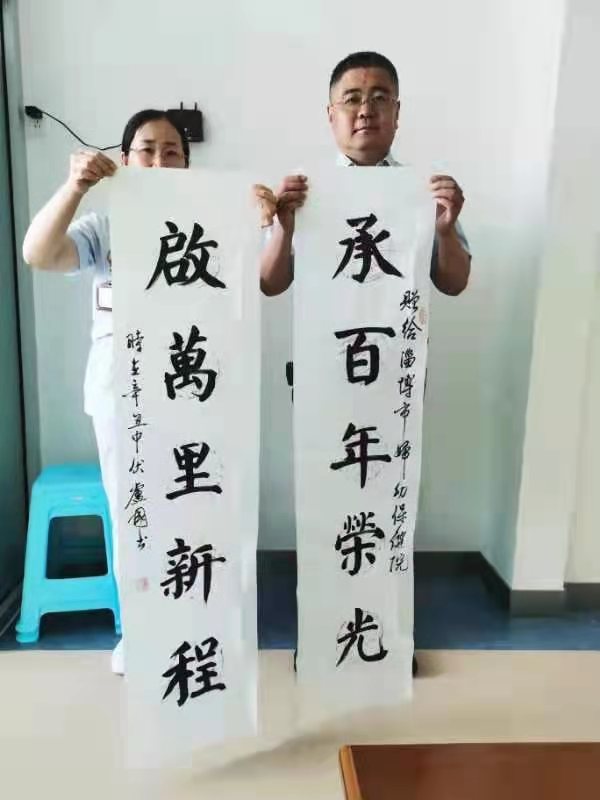 承百年榮光
贈给淄博市婦幼保健院
啟萬里新程
時在辛丑中伏盧國书